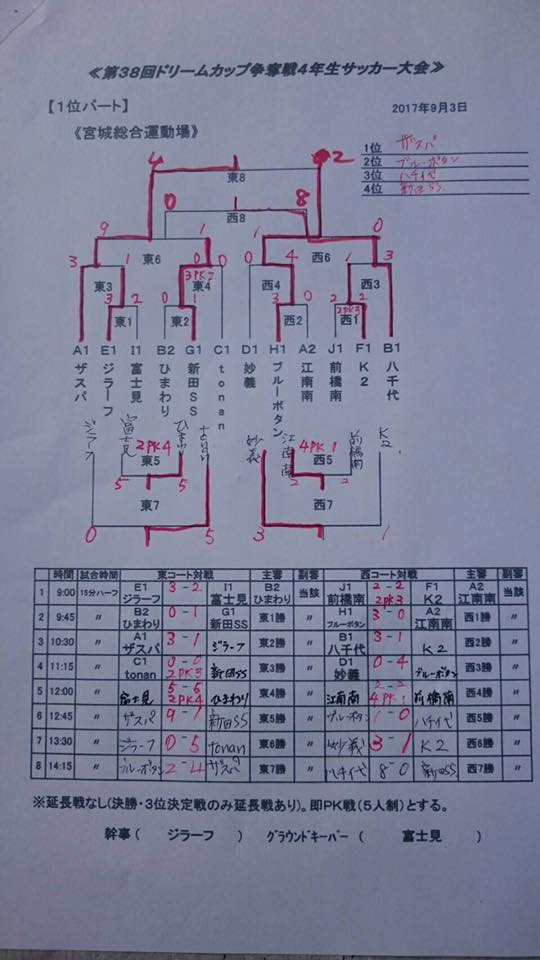 ≪第38回ドリームカップ争奪戦4年生サッカー大会≫
【1位パート】
2017年9月3日
《宮城総合運動場》
1位 ザスパ
2位 ブルーボタン
3位 ハチイ代
4位 新田SS
4 東8 2
0 西8 8
9 東6 1 1 西6 0
3 東3 1 0 東4 0 0 西4 4 1 西3 3
3PK2
3 東1 2 0 東2 1 3 西2 0 2 西1 2
2PK3
A1 E1 I1 B2 G1 C1 D1 H1 A2 J1 F1 B1
ザスパ ジラーフ 富士見 ひまわり 新田SS tonan 妙義 ブルーボタン 江南南 前橋南 K2 八千代
ジラーフ 富士見 ひまわり 妙義 江南南 前橋南 K2
2PK4 4PK1
5 東5 5 2 西5 2
0 東7 5 3 西7 1
時間 試合時間 東コート対戦 主審 副審 西コート対戦 主審 副審
1 9:00 15分ハーフ E1 ジラーフ 3-2 I1 富士見 B2 ひまわり 当該 J1 前橋南 2-2 2PK3 F1 K2 A2 江南南 当該
2 9:45 〃 B2 ひまわり 0-1 G1 新田SS 東1勝 〃 H1 ブルーボタン 3-0 A2 江南南 西1勝 〃
3 10:30 〃 A1 ザスパ 3-1 ジラーフ 東2勝 〃 B1 八千代 3-1 K2 西2勝 〃
4 11:15 〃 C1 tonan 0-0 2PK3 新田SS 東3勝 〃 D1 妙義 0-4 ブルーボタン 西3勝 〃
5 12:00 〃 富士見 5-5 2PK4 ひまわり 東4勝 〃 江南南 2-2 4PK1 前橋南 西4勝 〃
6 12:45 〃 ザスパ 9-1 新田SS 東5勝 〃 ブルーボタン 1-0 ハチイ代 西5勝 〃
7 13:30 〃 ジラーフ 0-5 tonan 東6勝 〃 妙義 3-1 K2 西6勝 〃
8 14:15 〃 ブルーボタン 2-4 ザスパ 東7勝 〃 ハチイ代 8-0 新田SS 西7勝 〃
※延長戦なし(決勝・3位決定戦のみ延長戦あり)。即PK戦(5人制)とする。
幹事( ジラーフ ) グラウンドキーパー( 富士見 )